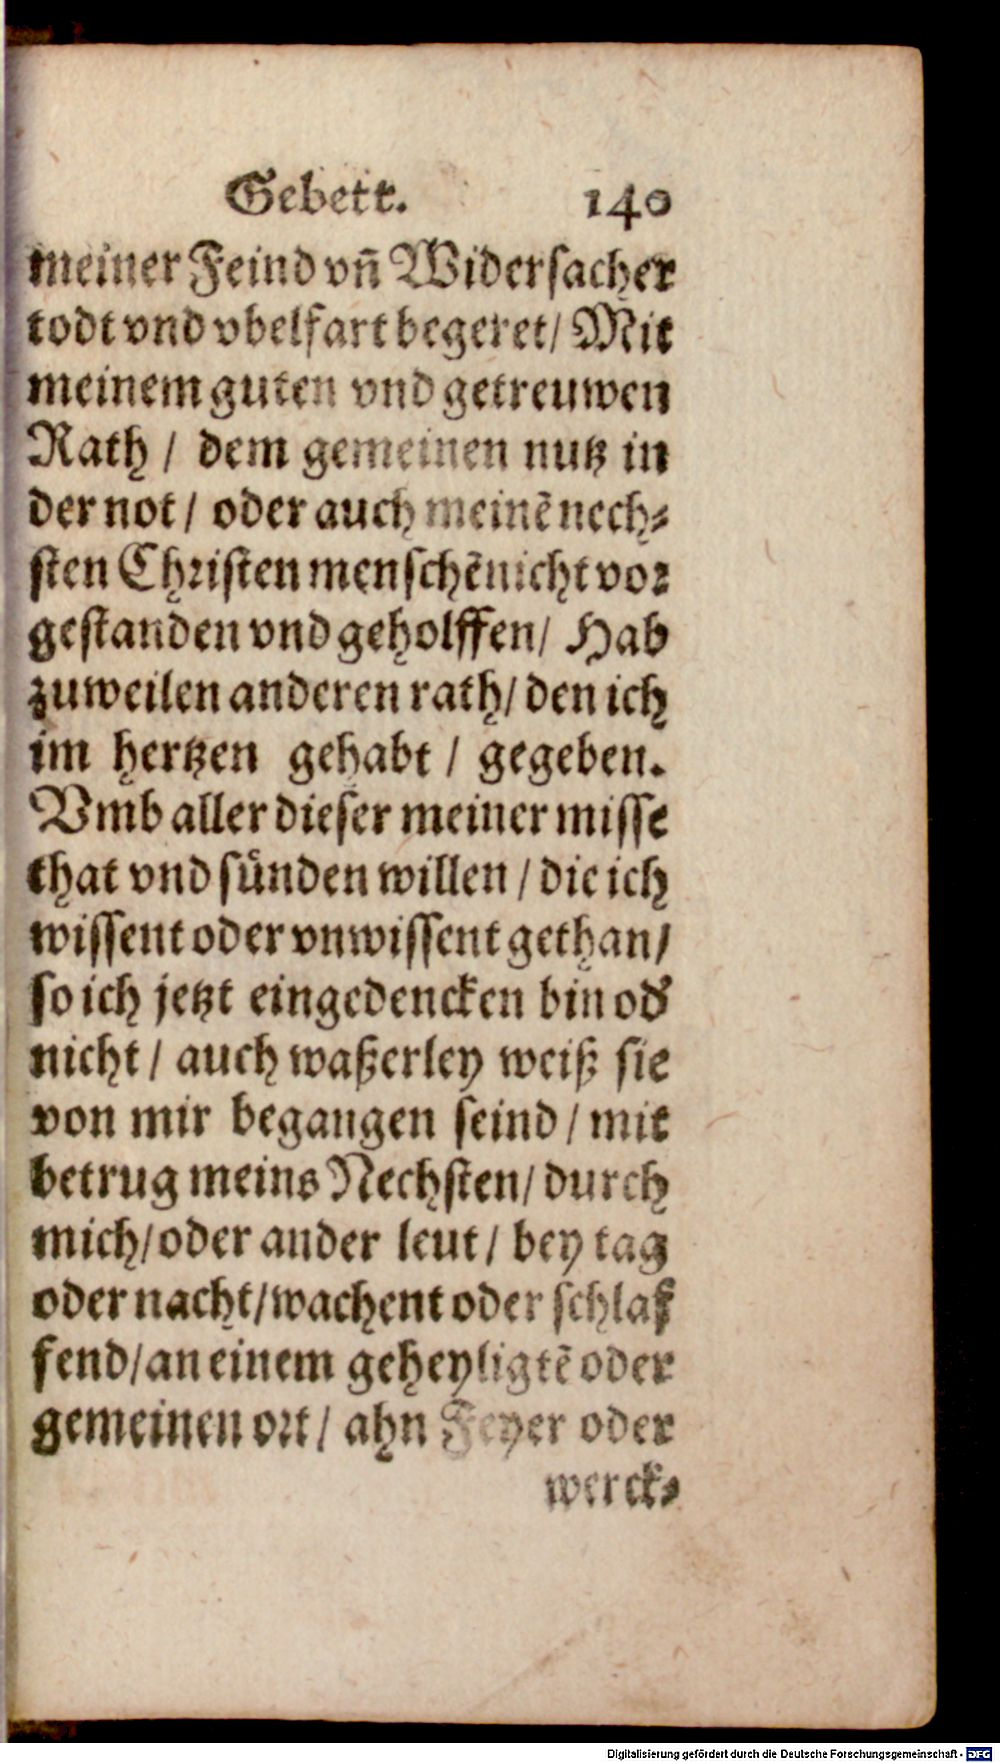 Gebett. 140
meiner Feind vñ Widersacher
todt vnd vbelfart begeret/ Mit
meinem guten vnd getreuwen
Rath / dem gemeinen nutz in
der not / oder auch meinē nech⸗
sten Christen menschē nicht vor
gestanden vnd geholffen/ Hab
zuweilen anderen rath/ den ich
im hertzen gehabt / gegeben.
Vmb aller dieser meiner misse
that vnd sünden willen / die ich
wissent oder vnwissent gethan/
so ich jetzt eingedencken bin od'
nicht / auch waßerley weiß sie
von mir begangen seind / mit
betrug meins Nechsten/ durch
mich/ oder ander leut / bey tag
oder nacht/ wachent oder schlaf
fend/ an einem geheyligtē oder
gemeinen ort / ahn Feyer oder
werck⸗
Digitalisierung gefördert durch die Deutsche Forschungsgemeinschaft - DFG